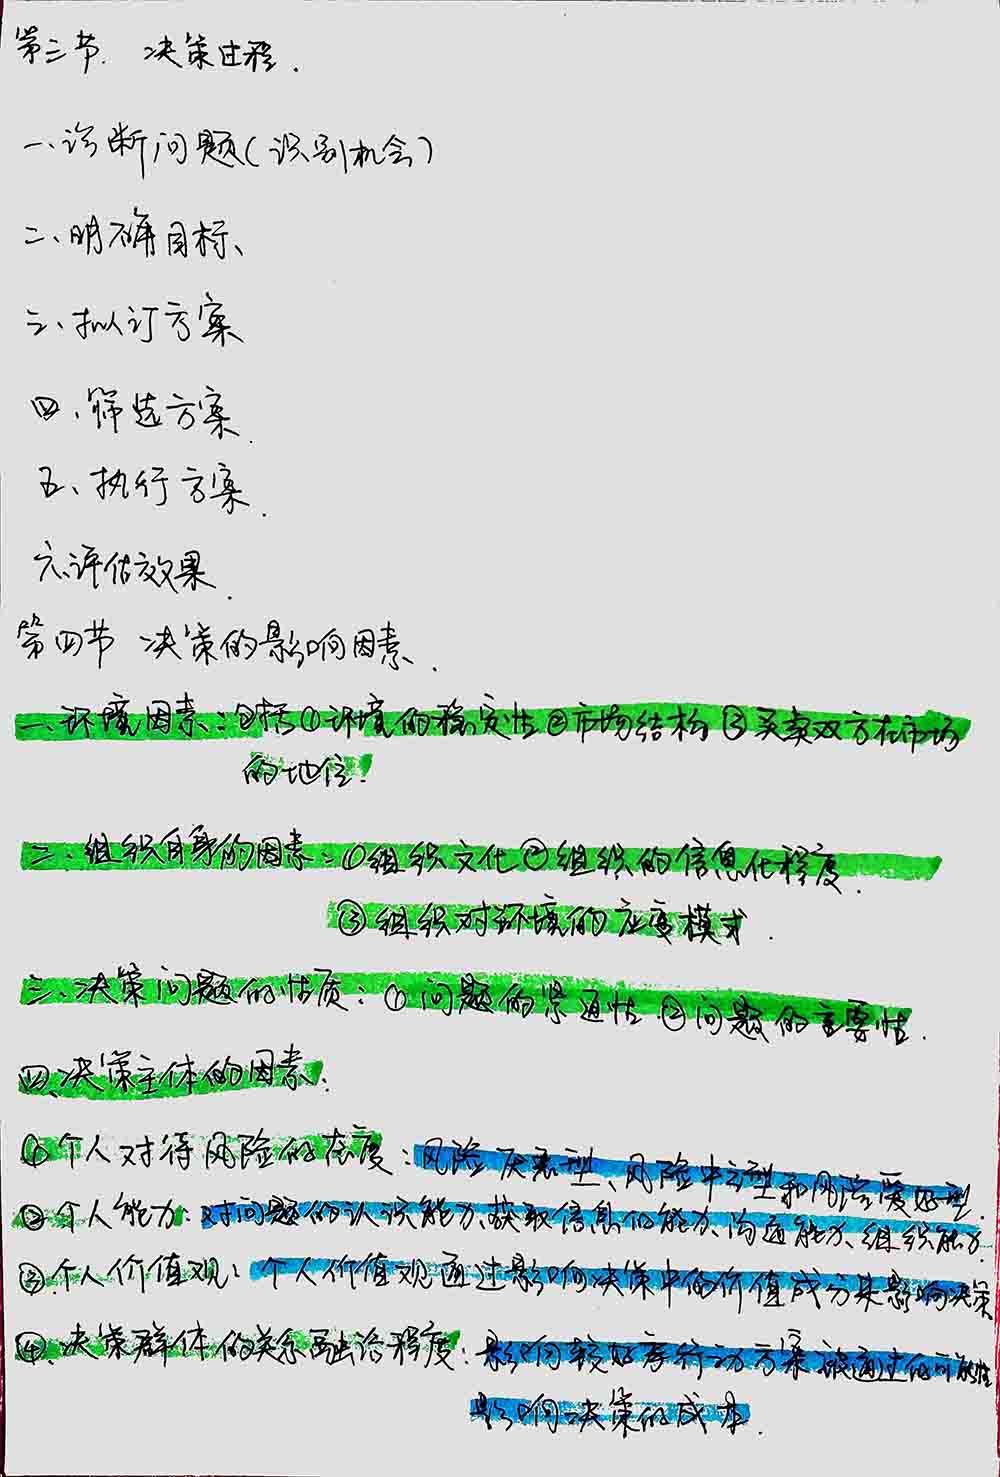 第三节. 决策过程.
一、诊断问题(识别机会)
二、明确目标、
三、拟订方案
四、筛选方案.
五、执行方案.
六、评估效果.
第四节 决策的影响因素.
一、环境因素:包括①环境的稳定性②市场结构③买卖双方在市场
的地位.
二、组织自身的因素:①组织文化②组织的信息化程度.
③组织对环境的应变模式.
三、决策问题的性质:①问题的紧迫性②问题的重要性.
四、决策主体的因素:
①个人对待风险的态度:风险厌恶型、风险中立型和风险爱好型.
②个人能力:对问题的认识能力、获取信息的能力、沟通能力、组织能力.
③个人价值观:个人价值观通过影响决策中的价值成分来影响决策
④决策群体的关系融洽程度:影响较好行动方案被通过的可能性
影响决策的成本.